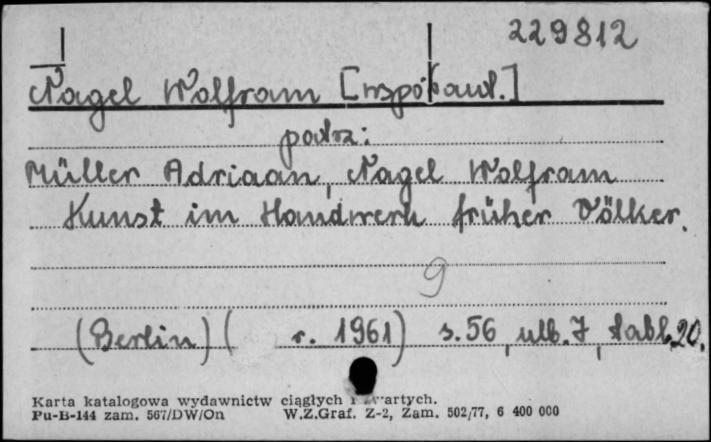 229812
Nagel Wolfram [współaut.]
patrz:
Müller Adriaan, Nagel Wolfram
Kunst im Handwerk früher Völker.
9
(Berlin) ( r. 1961) s. 56, ulb. 7, tabl. 20.
Karta katalogowa wydawnictw ciągłych i zwartych.
Pu-B-144 zam. 567/DW/On W.Z.Graf. Z-2, Zam. 502/77, 6 400 000